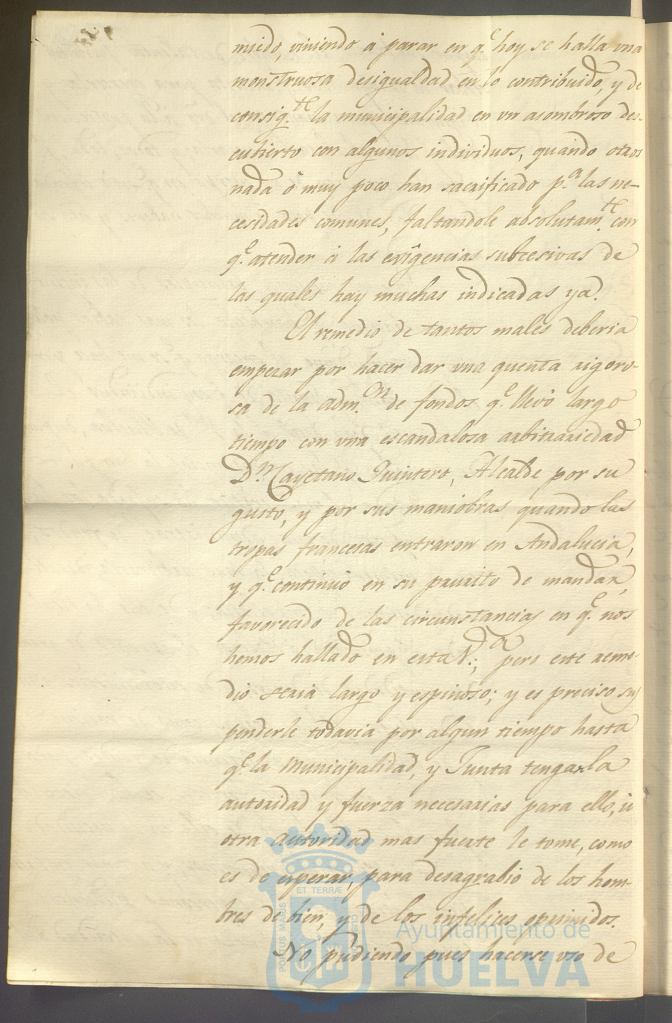 mido, viniendo á parar en q.e hoy se halla una
monstruosa desigualdad en lo contribuido, y de
consig.te la municipalidad en un asombroso des-
cubierto con algunos individuos, quando otros
nada ó muy poco han sacrificado p.a las ne-
cesidades comunes, faltandole absolutam.te con
q.e atender á las exîgencias subcesivas de
las quales hay muchas indicadas ya.
El remedio de tantos males deberia
empezar por hacer dar una quenta rigoro-
sa de la adm.on de fondos q.e llevó largo
tiempo con una escandalosa arbitrariedad
D.n Cayetano Quintero, Alcalde por su
gusto, y por sus maniobras quando las
tropas francesas entraron en Andalucia,
y q.e continuó en su prurito de mandar,
favorecido de las circunstancias en q.e nos
hemos hallado en esta V.a; pero este reme-
dio seria largo y espinoso; y es preciso sus
penderle todavia por algun tiempo hasta
q.e la Municipalidad, y Junta tenga la
autoridad y fuerza necesarias para ello, ú
otra autoridad mas fuerte le tome, como
es de esperar, para desagrabio de los hom-
bres de bien, y de los infelices oprimidos.
No pudiendo pues hacerse uso de
ET TERRÆ
Ayuntamiento de
HUELVA